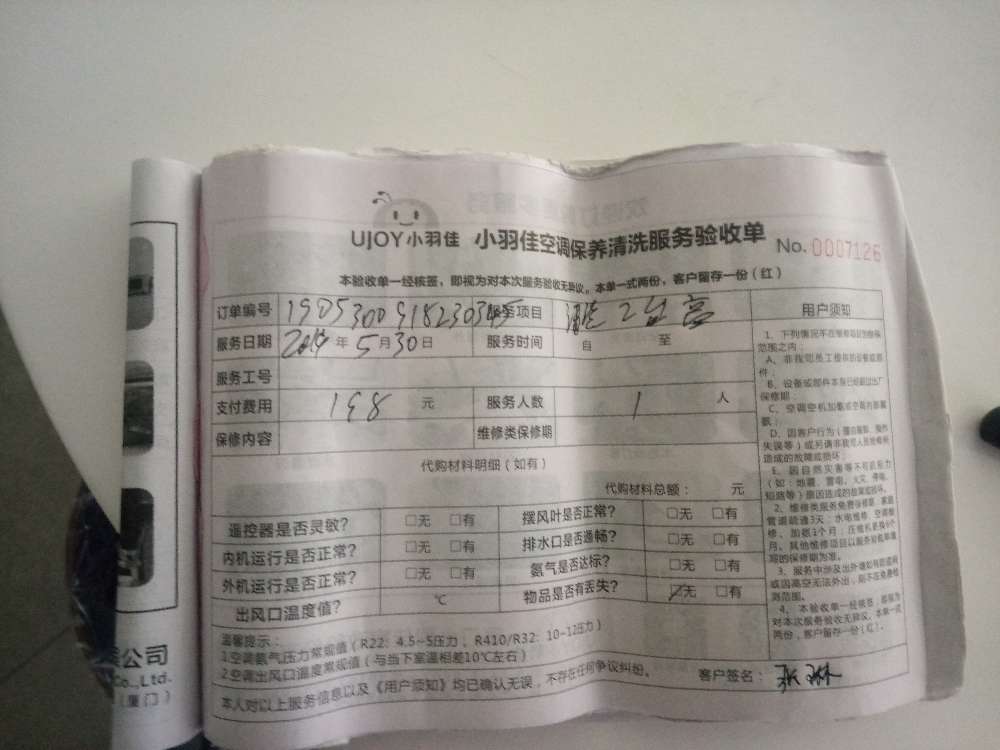 UJOY小羽佳 小羽佳空调保养清洗服务验收单 No. 0007126
本验收单一经核签，即视为对本次服务验收无异议。本单一式两份，客户留存一份（红）
订单编号 服务项目 2台 用户须知
服务日期 年5月30日 服务时间 自 至
服务工号
支付费用 198 元 服务人数 1 人
保修内容 维修类保修期
代购材料明细（如有）
代购材料总额： 元
遥控器是否灵敏？ □无 □有 摆风叶是否正常？ □无 □有
内机运行是否正常？ □无 □有 排水口是否通畅？ □无 □有
外机运行是否正常？ □无 □有 氨气是否达标？ □无 □有
出风口温度值？ ℃ 物品是否有丢失？ ☑无 □有
温馨提示：
1.空调氨气压力常规值（R22：4.5~5压力，R410/R32：10~12压力）
2.空调出风口温度常规值（与当下室温相差10℃左右）
本人对以上服务信息以及《用户须知》均已确认无误，不存在任何争议纠纷。 客户签名：
1、下列情况不在维修项目的保修
范围之内：
A、非我司员工提供的设备或部
件；
B、设备或部件本身已经超过出厂
保修期；
D、因客户行为
失误等）或另请非我司人员维修所
造成的故障或损坏；
E、因自然灾害等不可抗拒力
（如：地震、雷电、火灾、停电、
短路等）原因造成的故障或损坏。
管道疏通3天；水电维修、空调维
修、加氨1个月；压缩机更换6个
月。其他维修项目以服务验收单填
写的保修期为准。
3、服务中涉及出外墙如有防盗网
或因高空无法外出，则不在免费检
测范围。
4、本验收单一经核签，即视为
对本次服务验收无异议。本单一式
两份，客户留存一份（红）。
公司
Co., Ltd.
（厦门）